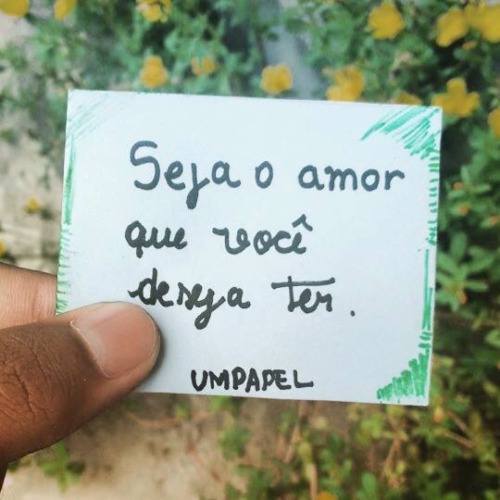 Seja o amor
que você
deseja ter.
UMPAPEL